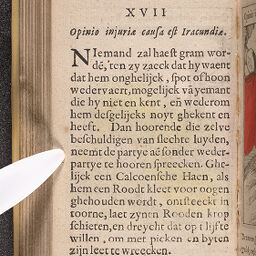 XVII
Opinio injuriæ causa est Iracundiæ.
NIemand zal haest gram wor-
dẽ, ten zy zaeck dat hy waent
dat hem onghelijck, spot of hoon
wedervaert, mogelijk vã yemant
die hy niet en kent, eñ wederom
hem desgelijcks noyt ghekent en
heeft. Dan hoorende die zelve
beschuldigen van slechte luyden,
neemt de partye aẽ sonder weder-
partye te hooren spreecken. Ghe-
lijck een Calcoensche Haen, als
hem een Roodt kleet voor oogen
ghehouden werdt, ontsteeckt in
toorne, laet zynen Rooden krop
schieten, en dreycht dat op 't lijfte
willen, om met picken en byten
zijn leet te wreecken.